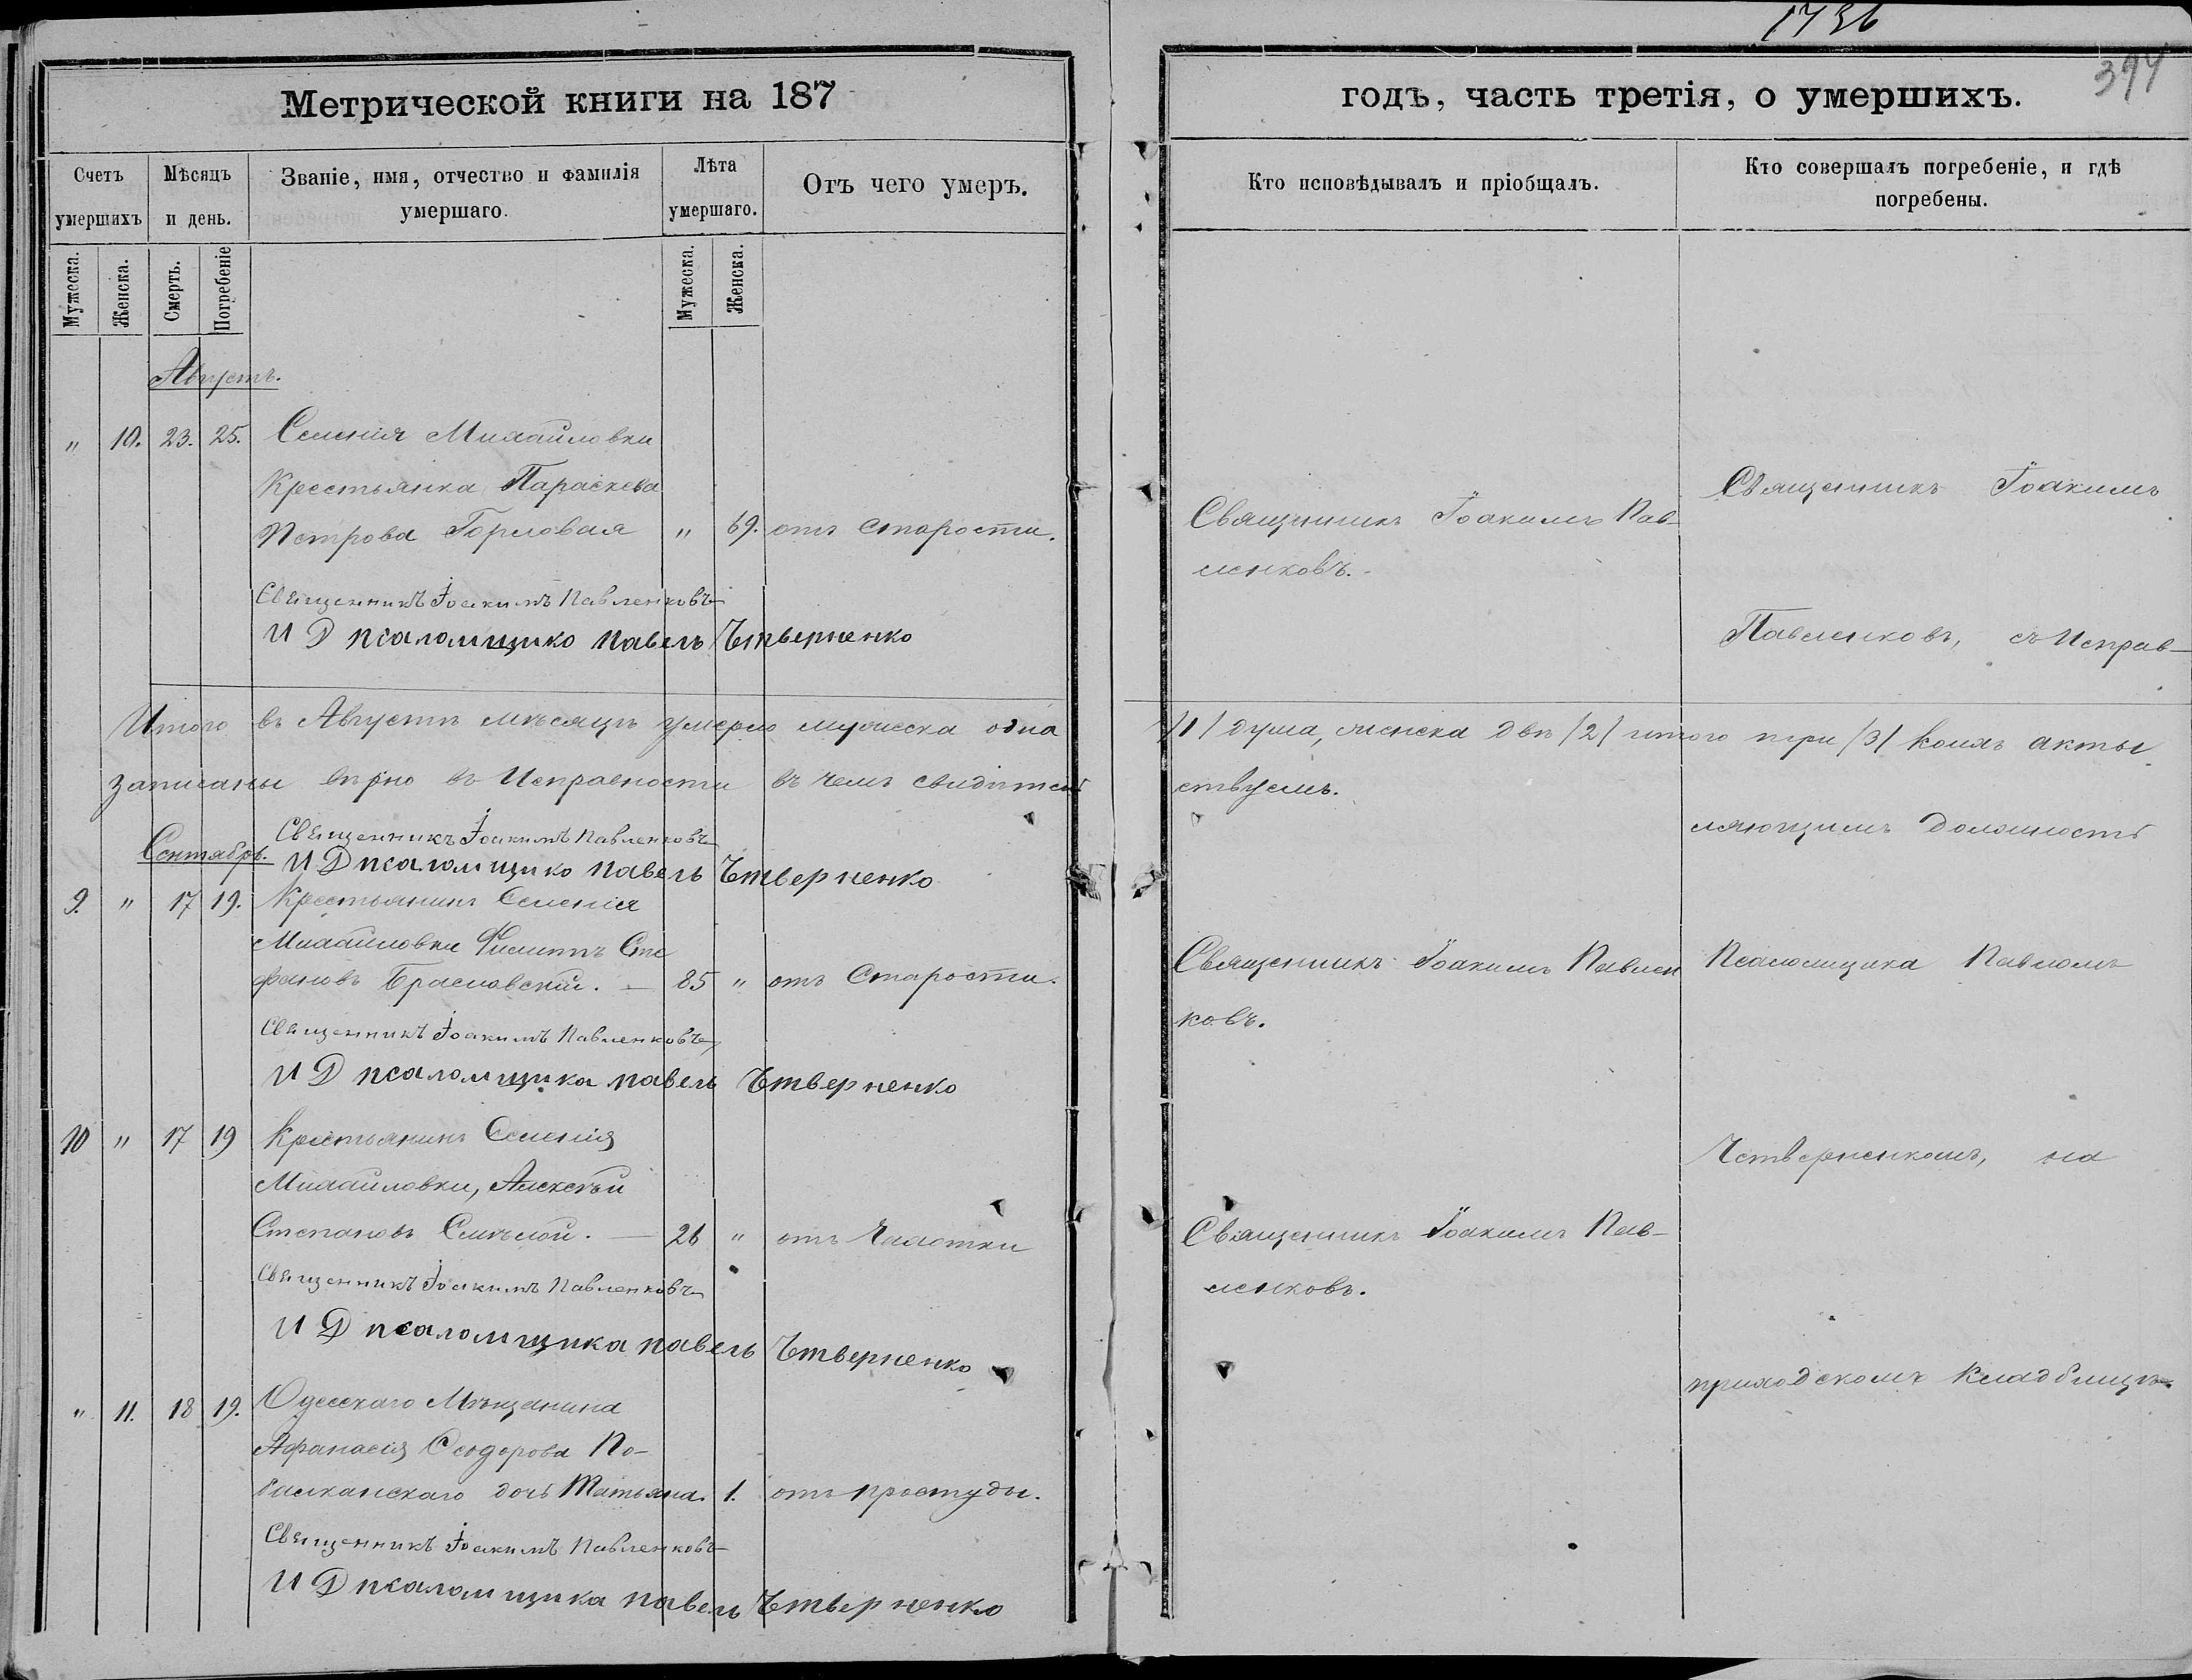 1736
394
Метрической книги на 187
годъ, часть третія, о умершихъ.
Счетъ умершихъ
Мѣсяцъ и день.
Званіе, имя, отчество и фамилія умершаго.
Лѣта умершаго.
Отъ чего умеръ.
Кто исповѣдывалъ и пріобщалъ.
Кто совершалъ погребеніе, и гдѣ погребены.
Мужеска.
Женска.
Смерть.
Погребеніе
Мужеска.
Женска.
Августъ.
" 10. 23. 25. Селенія Михайловки
Крестьянка Параскева
Петрова Горловая " 69. отъ старости.
Священникъ Іоакимъ Пав-
ленковъ.
Священникъ Іоакимъ Павленковъ
И Д псаломщико Павелъ Чтверненко
Итого въ Августѣ мѣсяцѣ умерло мужеска одна /1/ душа, женска двѣ /2/ итого три /3/ коихъ акты
записаны вѣрно въ Исправности въ чемъ свидѣтель
ствуемъ.
Священникъ Іоакимъ Павленковъ
Сентябрь.
И Д псаломщико Павелъ Чтверненко
9. " 17 19. Крестьянинъ Селенія
Михайловки Филиппъ Сте
фановъ Браславскій. — 85 " отъ Старости.
Священникъ Іоакимъ Павлен
ковъ.
Священникъ Іоакимъ Павленковъ
И Д псаломщика Павелъ Чтверненко
10 " 17 19 Крестьянинъ Селенія
Михайловки, Алексѣй
Степановъ — 26 " отъ Чахотки
Священникъ Іоакимъ Пав-
ленковъ.
Священникъ Іоакимъ Павленковъ
И Д псаломщика Павелъ Чтверненко
" 11. 18 19. Одесскаго Мѣщанина
Афанасія Ѳеодорова По-
балканскаго дочь Татьяна. 1. отъ простуды.
Священникъ Іоакимъ Павленковъ
И Д псаломщика Павелъ Чтверненко
Священникъ Іоакимъ
Павленковъ, съ Исправ-
ляющимъ должность
Псаломщика Павломъ
Четверненкомъ, на
приходскомъ кладбищѣ.